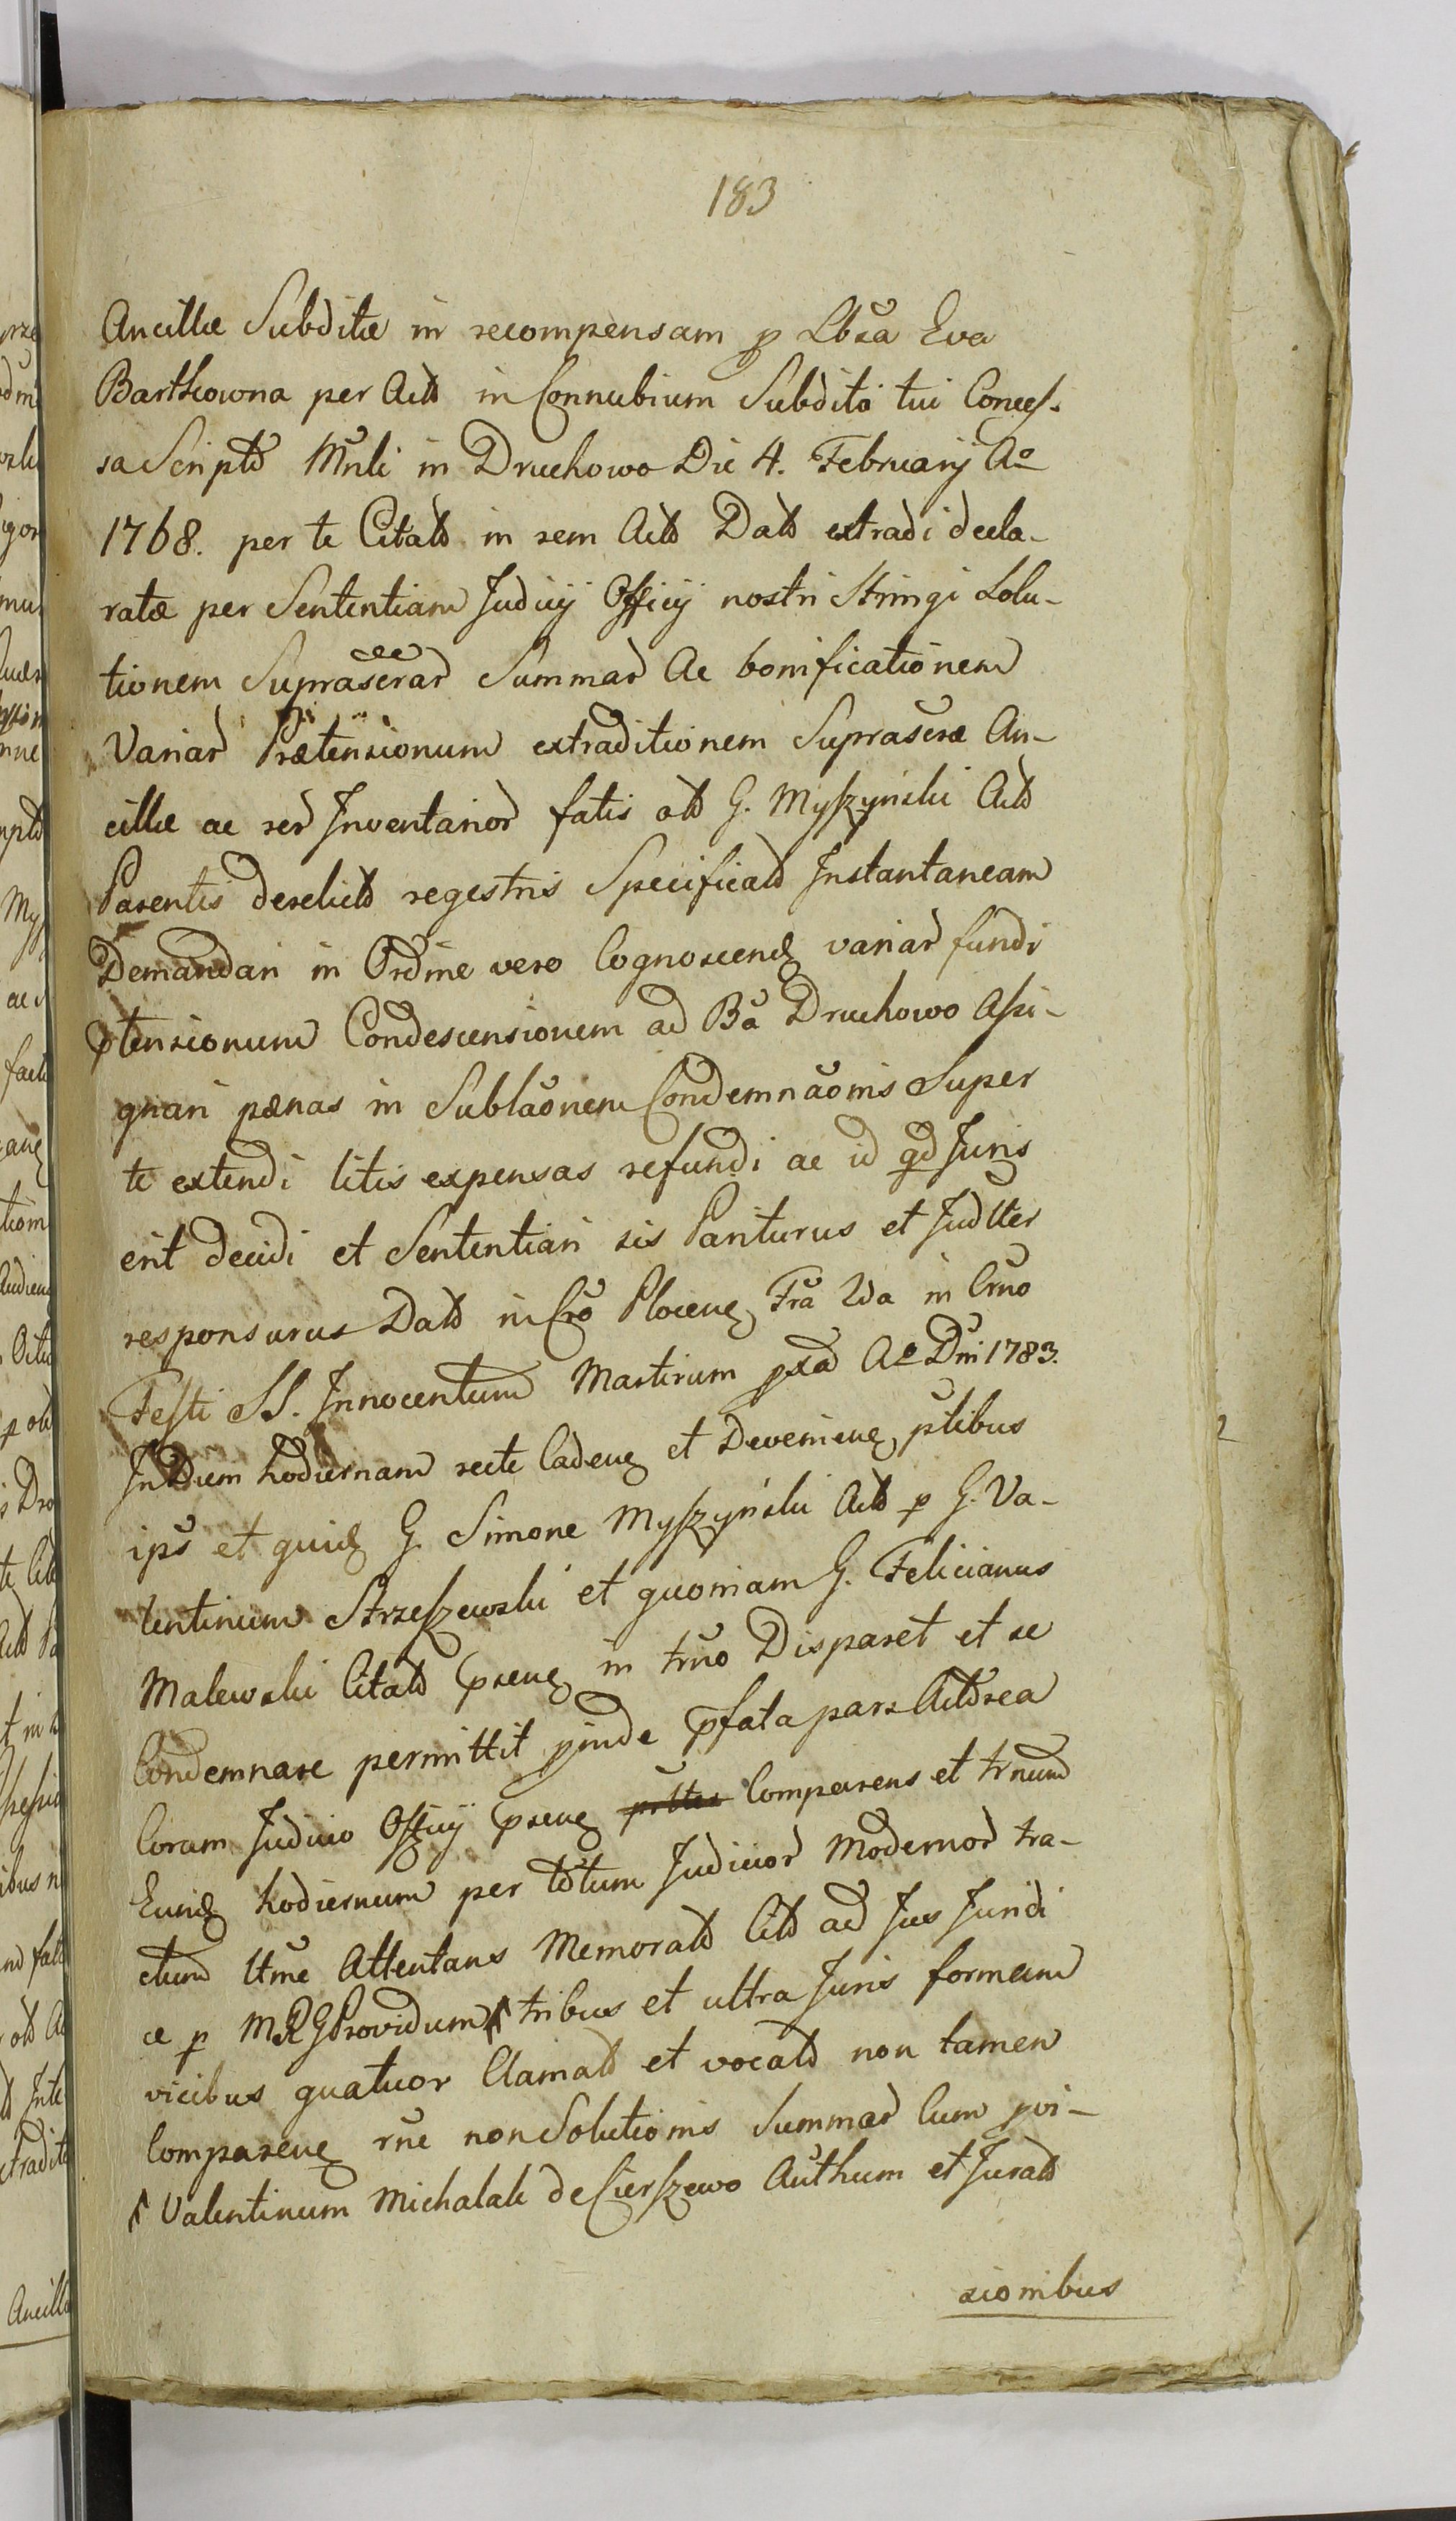 183
Ancillæ Subditæ in recompensam p Lbra Eva
Barthowna per Actt in Connubium Subdito tui Concess.
sa Scriptt Mnli in Druchowo Die 4. Februarij Ao
1768. per te Citatt in rem Actt Datt extradi decla-
ratæ per Sententiam Judicij Officij nostri Stringi Solu-
tionem Suprascrar Summar Ac bonificationem
Variar Prætensionum extraditionem Suprascræ An-
cillæ ac rer Inventarior fatis olt G. Myszyński Actt
Parentis derelictt regestris Specificatt Instantaneam
Demandari in Ordine vero Cognoscend variar fundi
ptensionum Condescensionem ad Bã Druchowo Assi-
gnari pænas in Sublãonem Condemnãonis Super
te extendi litis expensas refundi ac id qd Juris
erit decidi et Sententiari sis Pariturus et Judtter
responsurus Datt in Cro Plocen Fra 2da in Crno
Festi SS. Innocentum Martirum pxa Ao Dni 1783.
In Diem hodiernam recte Caden et Devenien ptibus
ips et quid G. Simone Myszyński Actt p G. Va-
lentinum Strzeszewski et quoniam G. Felicianus
Malewski Citatt psens in trno Disparet et se
Condemnare permittit pinde pfata pars Acttrea
Coram Judicio Officij psens prtter Comparens et trnum
Eund hodiernum per totum Judicior Modernor tra-
ctum ltme Attentans Memoratt Citt ad Jus Juridi
ce p MRG Providum ⁁ tribus et ultra Juris formam
vicibus quatuor Clamatt et vocatt non tamen
Comparens rne non Solutionis Summar Cum pvi-
⁁ Valentinum Michalak de Cierszewo Authum et Juratt
sionibus
2